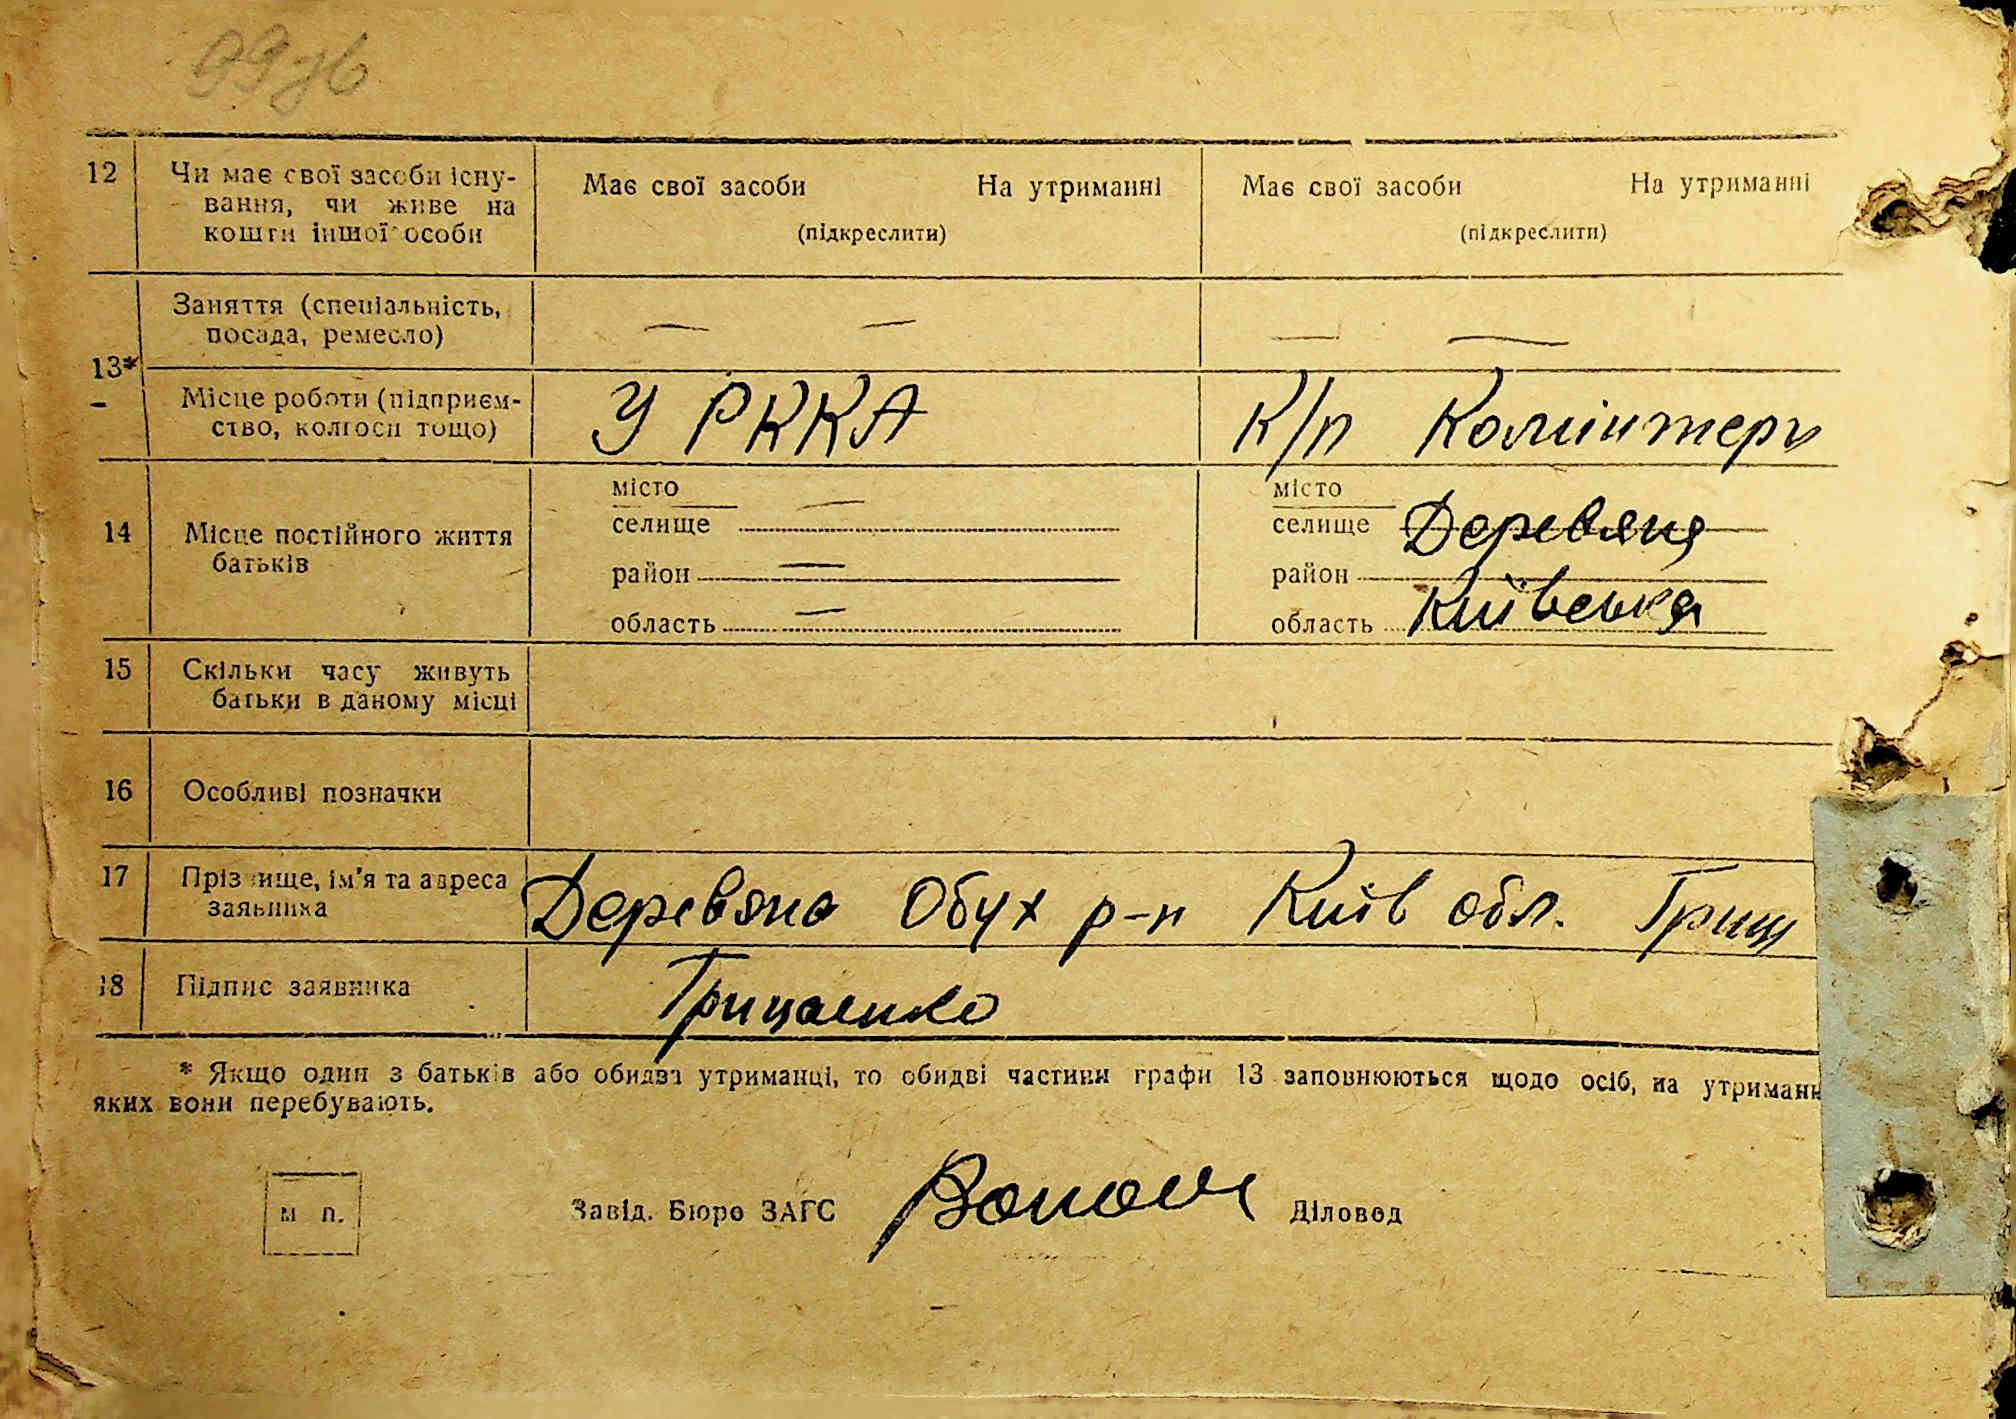 99зв
12 Чи має свої засоби існу- Має свої засоби На утриманні Має свої засоби На утриманні
вання, чи живе на
кошти іншої особи (підкреслити) (підкреслити)
Заняття (спеціальність, — — — —
посада, ремесло)
13*
Місце роботи (підприєм- У РККА К/п Комінтерн
ство, колгосп тощо)
місто — місто
селище селище Деревяна
14 Місце постійного життя
батьків район — район
область — область Київська
15 Скільки часу живуть
батьки в даному місці
16 Особливі позначки
17 Прізвище, ім'я та адреса Деревяна Обух р-н Київ обл. Гриц
заявника
18 Підпис заявника Грицаенко
* Якщо один з батьків або обидва утриманці, то обидві частини графи 13 заповнюються щодо осіб, на утриманн
яких вони перебувають.
м п. Завід. Бюро ЗАГС Діловод